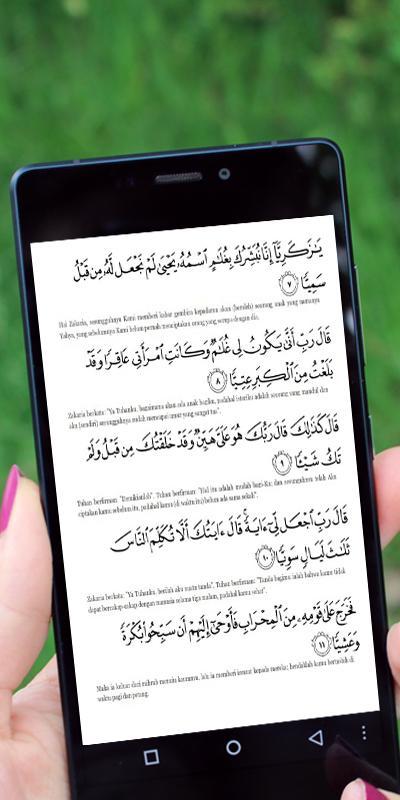 يَٰزَكَرِيَّآ إِنَّا نُبَشِّرُكَ بِغُلَٰمٍ ٱسْمُهُۥ يَحْيَىٰ لَمْ نَجْعَل لَّهُۥ مِن قَبْلُ
سَمِيًّا ٧
Hai Zakaria, sesungguhnya Kami memberi kabar gembira kepadamu akan (beroleh) seorang anak yang namanya
Yahya, yang sebelumnya Kami belum pernah menciptakan orang yang serupa dengan dia.
قَالَ رَبِّ أَنَّىٰ يَكُونُ لِى غُلَٰمٌ وَكَانَتِ ٱمْرَأَتِى عَاقِرًا وَقَدْ
بَلَغْتُ مِنَ ٱلْكِبَرِ عِتِيًّا ٨
Zakaria berkata: "Ya Tuhanku, bagaimana akan ada anak bagiku, padahal isteriku adalah seorang yang mandul dan
aku (sendiri) sesungguhnya sudah mencapai umur yang sangat tua".
قَالَ كَذَٰلِكَ قَالَ رَبُّكَ هُوَ عَلَىَّ هَيِّنٌ وَقَدْ خَلَقْتُكَ مِن قَبْلُ وَلَمْ
تَكُ شَيْـًٔا ٩
Tuhan berfirman: "Demikianlah". Tuhan berfirman: "Hal itu adalah mudah bagi-Ku; dan sesungguhnya telah Aku
ciptakan kamu sebelum itu, padahal kamu (di waktu itu) belum ada sama sekali".
قَالَ رَبِّ ٱجْعَل لِّىٓ ءَايَةً ۚ قَالَ ءَايَتُكَ أَلَّا تُكَلِّمَ ٱلنَّاسَ
ثَلَٰثَ لَيَالٍ سَوِيًّا ١٠
Zakaria berkata: "Ya Tuhanku, berilah aku suatu tanda". Tuhan berfirman: "Tanda bagimu ialah bahwa kamu tidak
dapat bercakap-cakap dengan manusia selama tiga malam, padahal kamu sehat".
فَخَرَجَ عَلَىٰ قَوْمِهِۦ مِنَ ٱلْمِحْرَابِ فَأَوْحَىٰٓ إِلَيْهِمْ أَن سَبِّحُوا۟ بُكْرَةً
وَعَشِيًّا ١١
Maka ia keluar dari mihrab menuju kaumnya, lalu ia memberi isyarat kepada mereka; hendaklah kamu bertasbih di
waktu pagi dan petang.